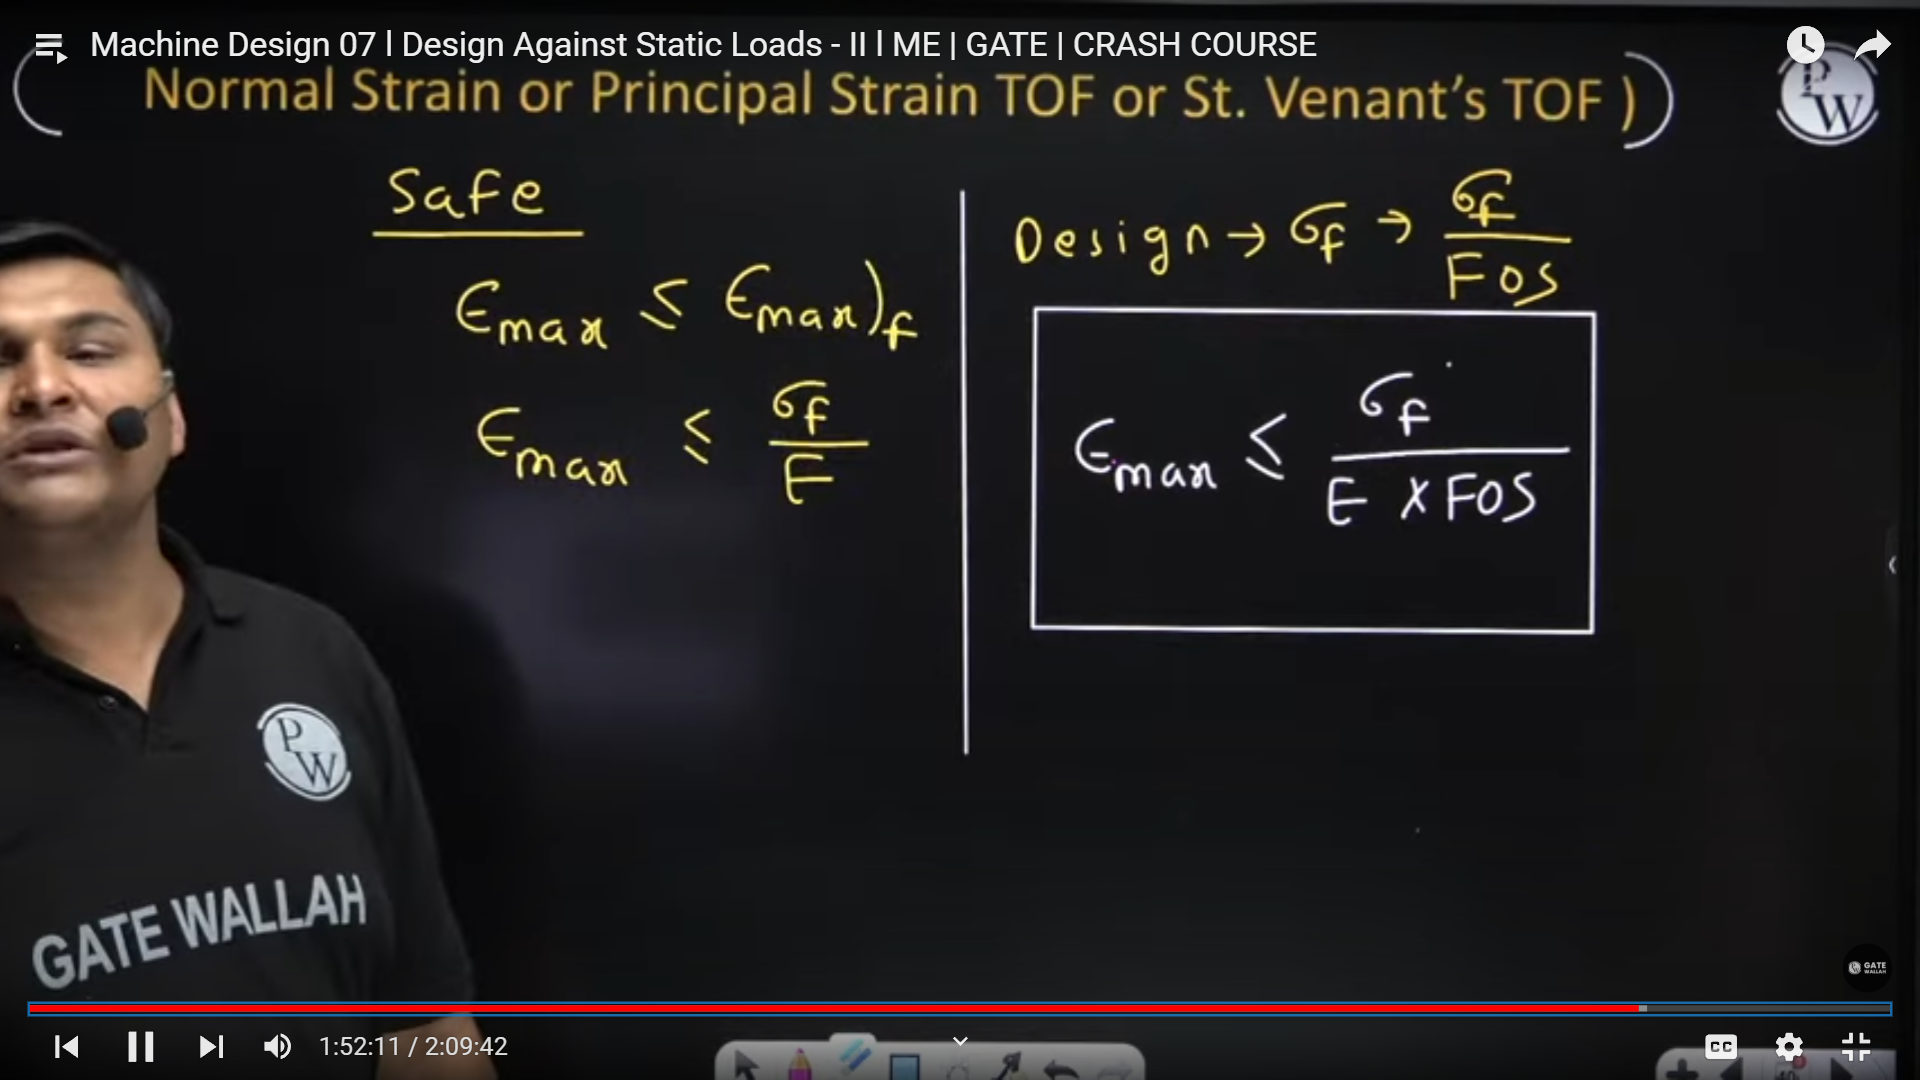 Machine Design 07 l Design Against Static Loads - II l ME | GATE | CRASH COURSE
Normal Strain or Principal Strain TOF or St. Venant's TOF )
PW
Safe
ϵmax ≤ ϵmax)f
ϵmax ≤ σf/E
Design → σf → σf/FOS
ϵmax ≤ σf/(E × FOS)
PW
GATE WALLAH
GATE WALLAH
1:52:11 / 2:09:42
CC